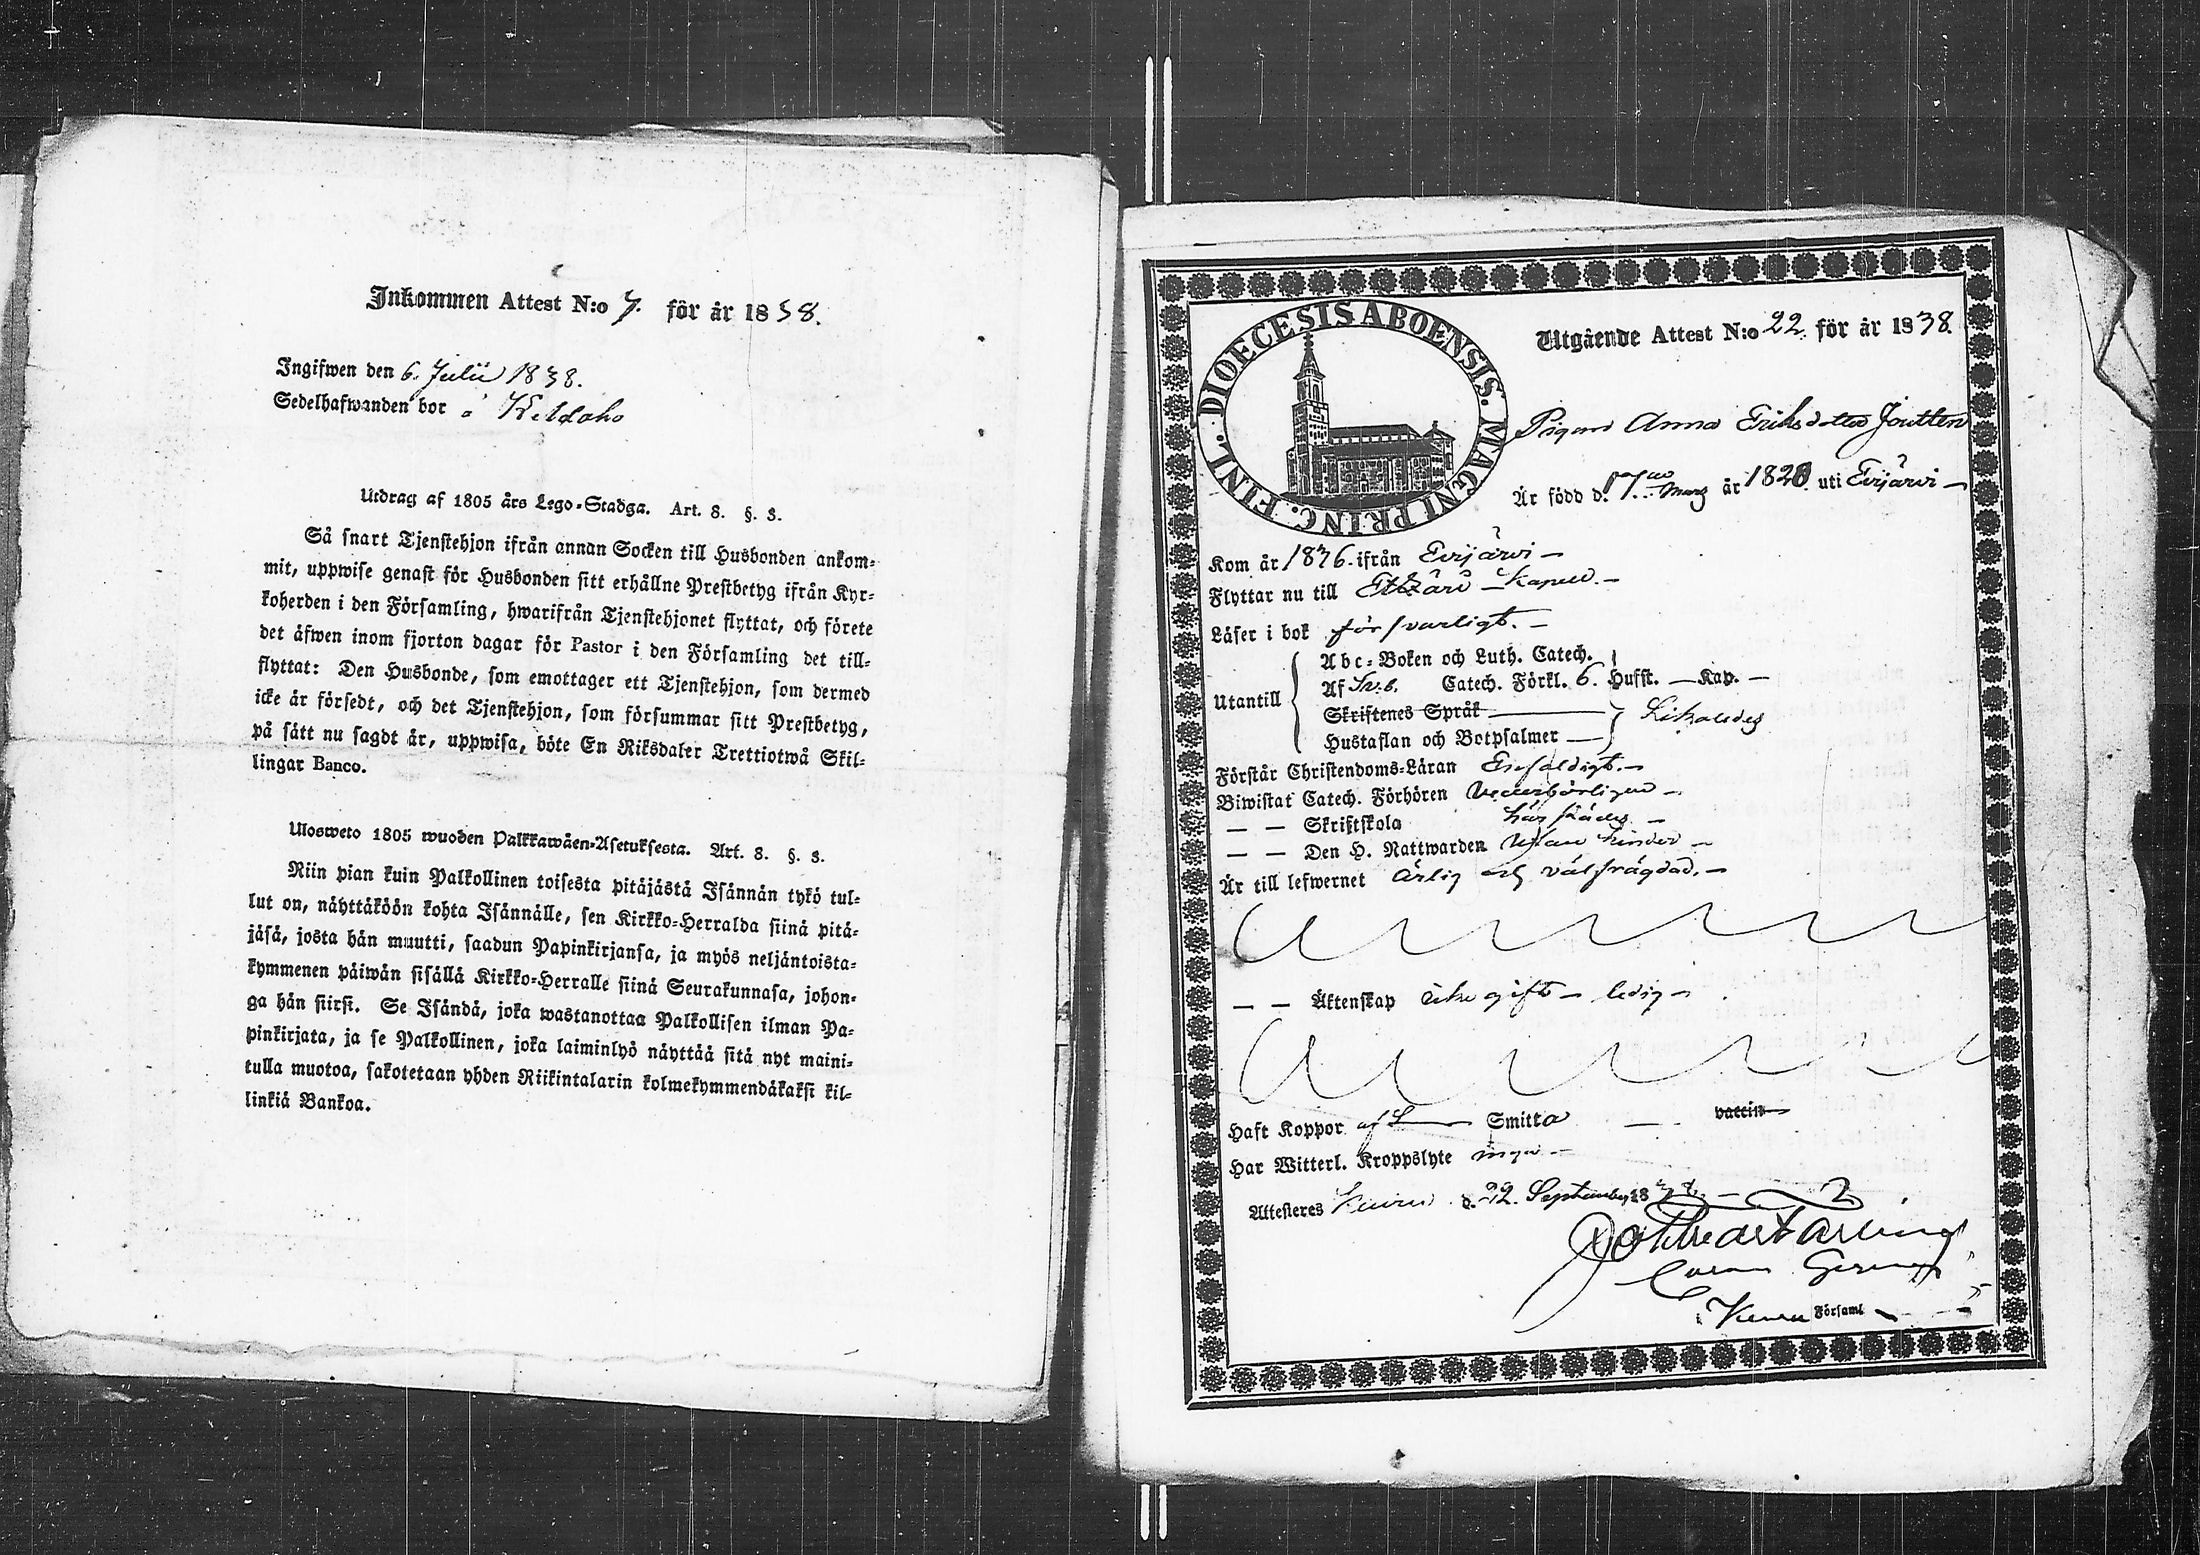 Inkommen Attest N:o 7. för år 1838.
Ingifwen den 6. Julii 1838.
Sedelhafwanden bor å
Utdrag af 1805 års Lego-Stadga. Art. 8. §. 3.
Så snart Tjenstehjon ifrån annan Socken till Husbonden ankom-
mit, uppwise genast för Husbonden sitt erhållne Prestbetyg ifrån Kyr-
koherden i den Församling, hwarifrån Tjenstehjonet flyttat, och förete
det äfwen inom fjorton dagar för Pastor i den Församling det till-
flyttat: Den Husbonde, som emottager ett Tjenstehjon, som dermed
icke är försedt, och det Tjenstehjon, som försummar sitt Prestbetyg,
på sätt nu sagdt är, uppwisa, böte En Riksdaler Trettiotwå Skil-
lingar Banco.
Ulosweto 1805 wuoden Palkkawäen-Asetuksesta. Art. 8. §. 3.
Niin pian kuin Palkollinen toisesta pitäjästä Isännän tykö tul-
lut on, näyttäköön kohta Isännälle, sen Kirkko-Herralda siinä pitä-
jäsä, josta hän muutti, saadun Papinkirjansa, ja myös neljäntoista-
kymmenen päiwän sisällä Kirkko-Herralle siinä Seurakunnasa, johon-
ga hän siirsi. Se Isändä, joka wastanottaa Palkollisen ilman Pa-
pinkirjata, ja se Palkollinen, joka laiminlyö näyttää sitä nyt maini-
tulla muotoa, sakotetaan yhden Riikintalarin kolmekymmendäkaksi kil-
linkiä Bankoa.
DIOECESIS ABOENSIS. MAGNI PRINC. FINL.
Utgående Attest N:o 22. för år 1838.
Pigan Anna Eriksdotter Joutten
Är född d. 17 Martz år 1820 uti Evijärvi
Kom år 1836. ifrån Evijärvi
Flyttar nu till Etzäri Kapell.
Läser i bok försvarligt.
Utantill
Abc-Boken och Luth. Catech.
Af Sv:b. Catech. Förkl. 6. Hufst. Kap.
Skriftenes Språk
Hustaflan och Botpsalmer
Likaledes
Förstår Christendoms-Läran Enfaldigt.
Biwistat Catech. Förhören vederbörligen
Skriftskola härstädes
Den H. Nattwarden utan hinder
Är till lefwernet ärlig och välfrägdad.
Äktenskap icke gift ledig
Haft Koppor af Smitta vaccin
Har Witterl. Kroppslyte inga
Attesteres Keuru d. 22. September 1838.
Keuru Församl